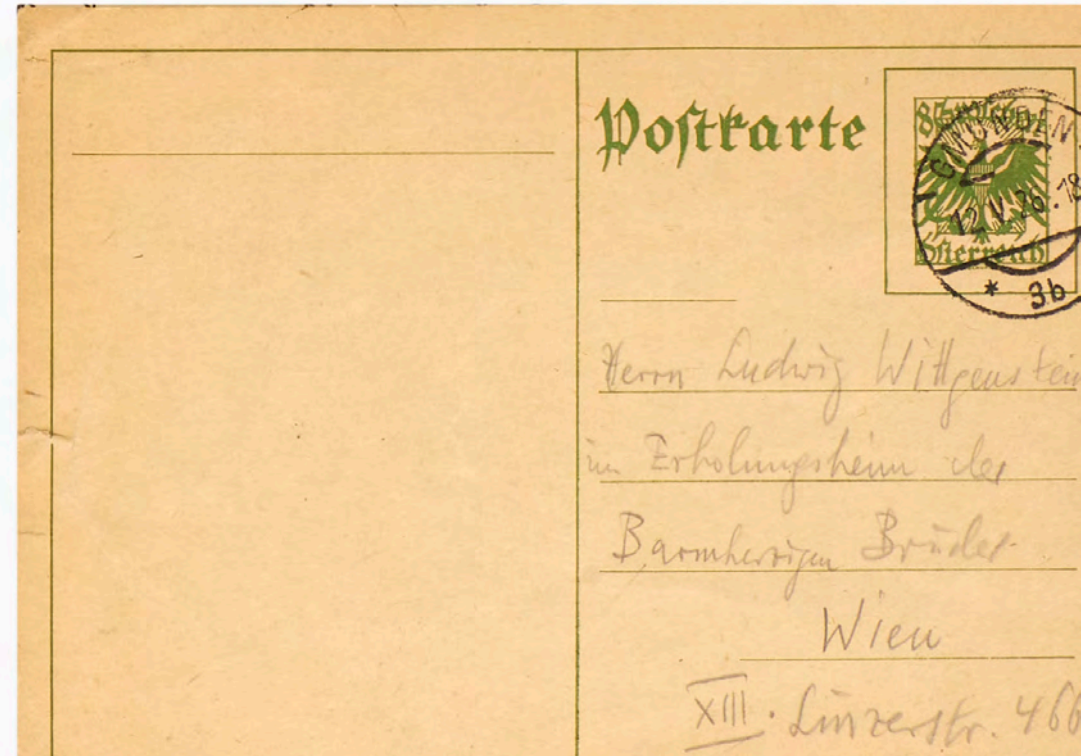 Postkarte
8 Groschen
Österreich
GMUNDEN
12.V.26.18
* 3b
Herrn Ludwig Wittgenstein
im Erholungsheim der
Barmherzigen Brüder
Wien
XIII. Linzerstr. 466